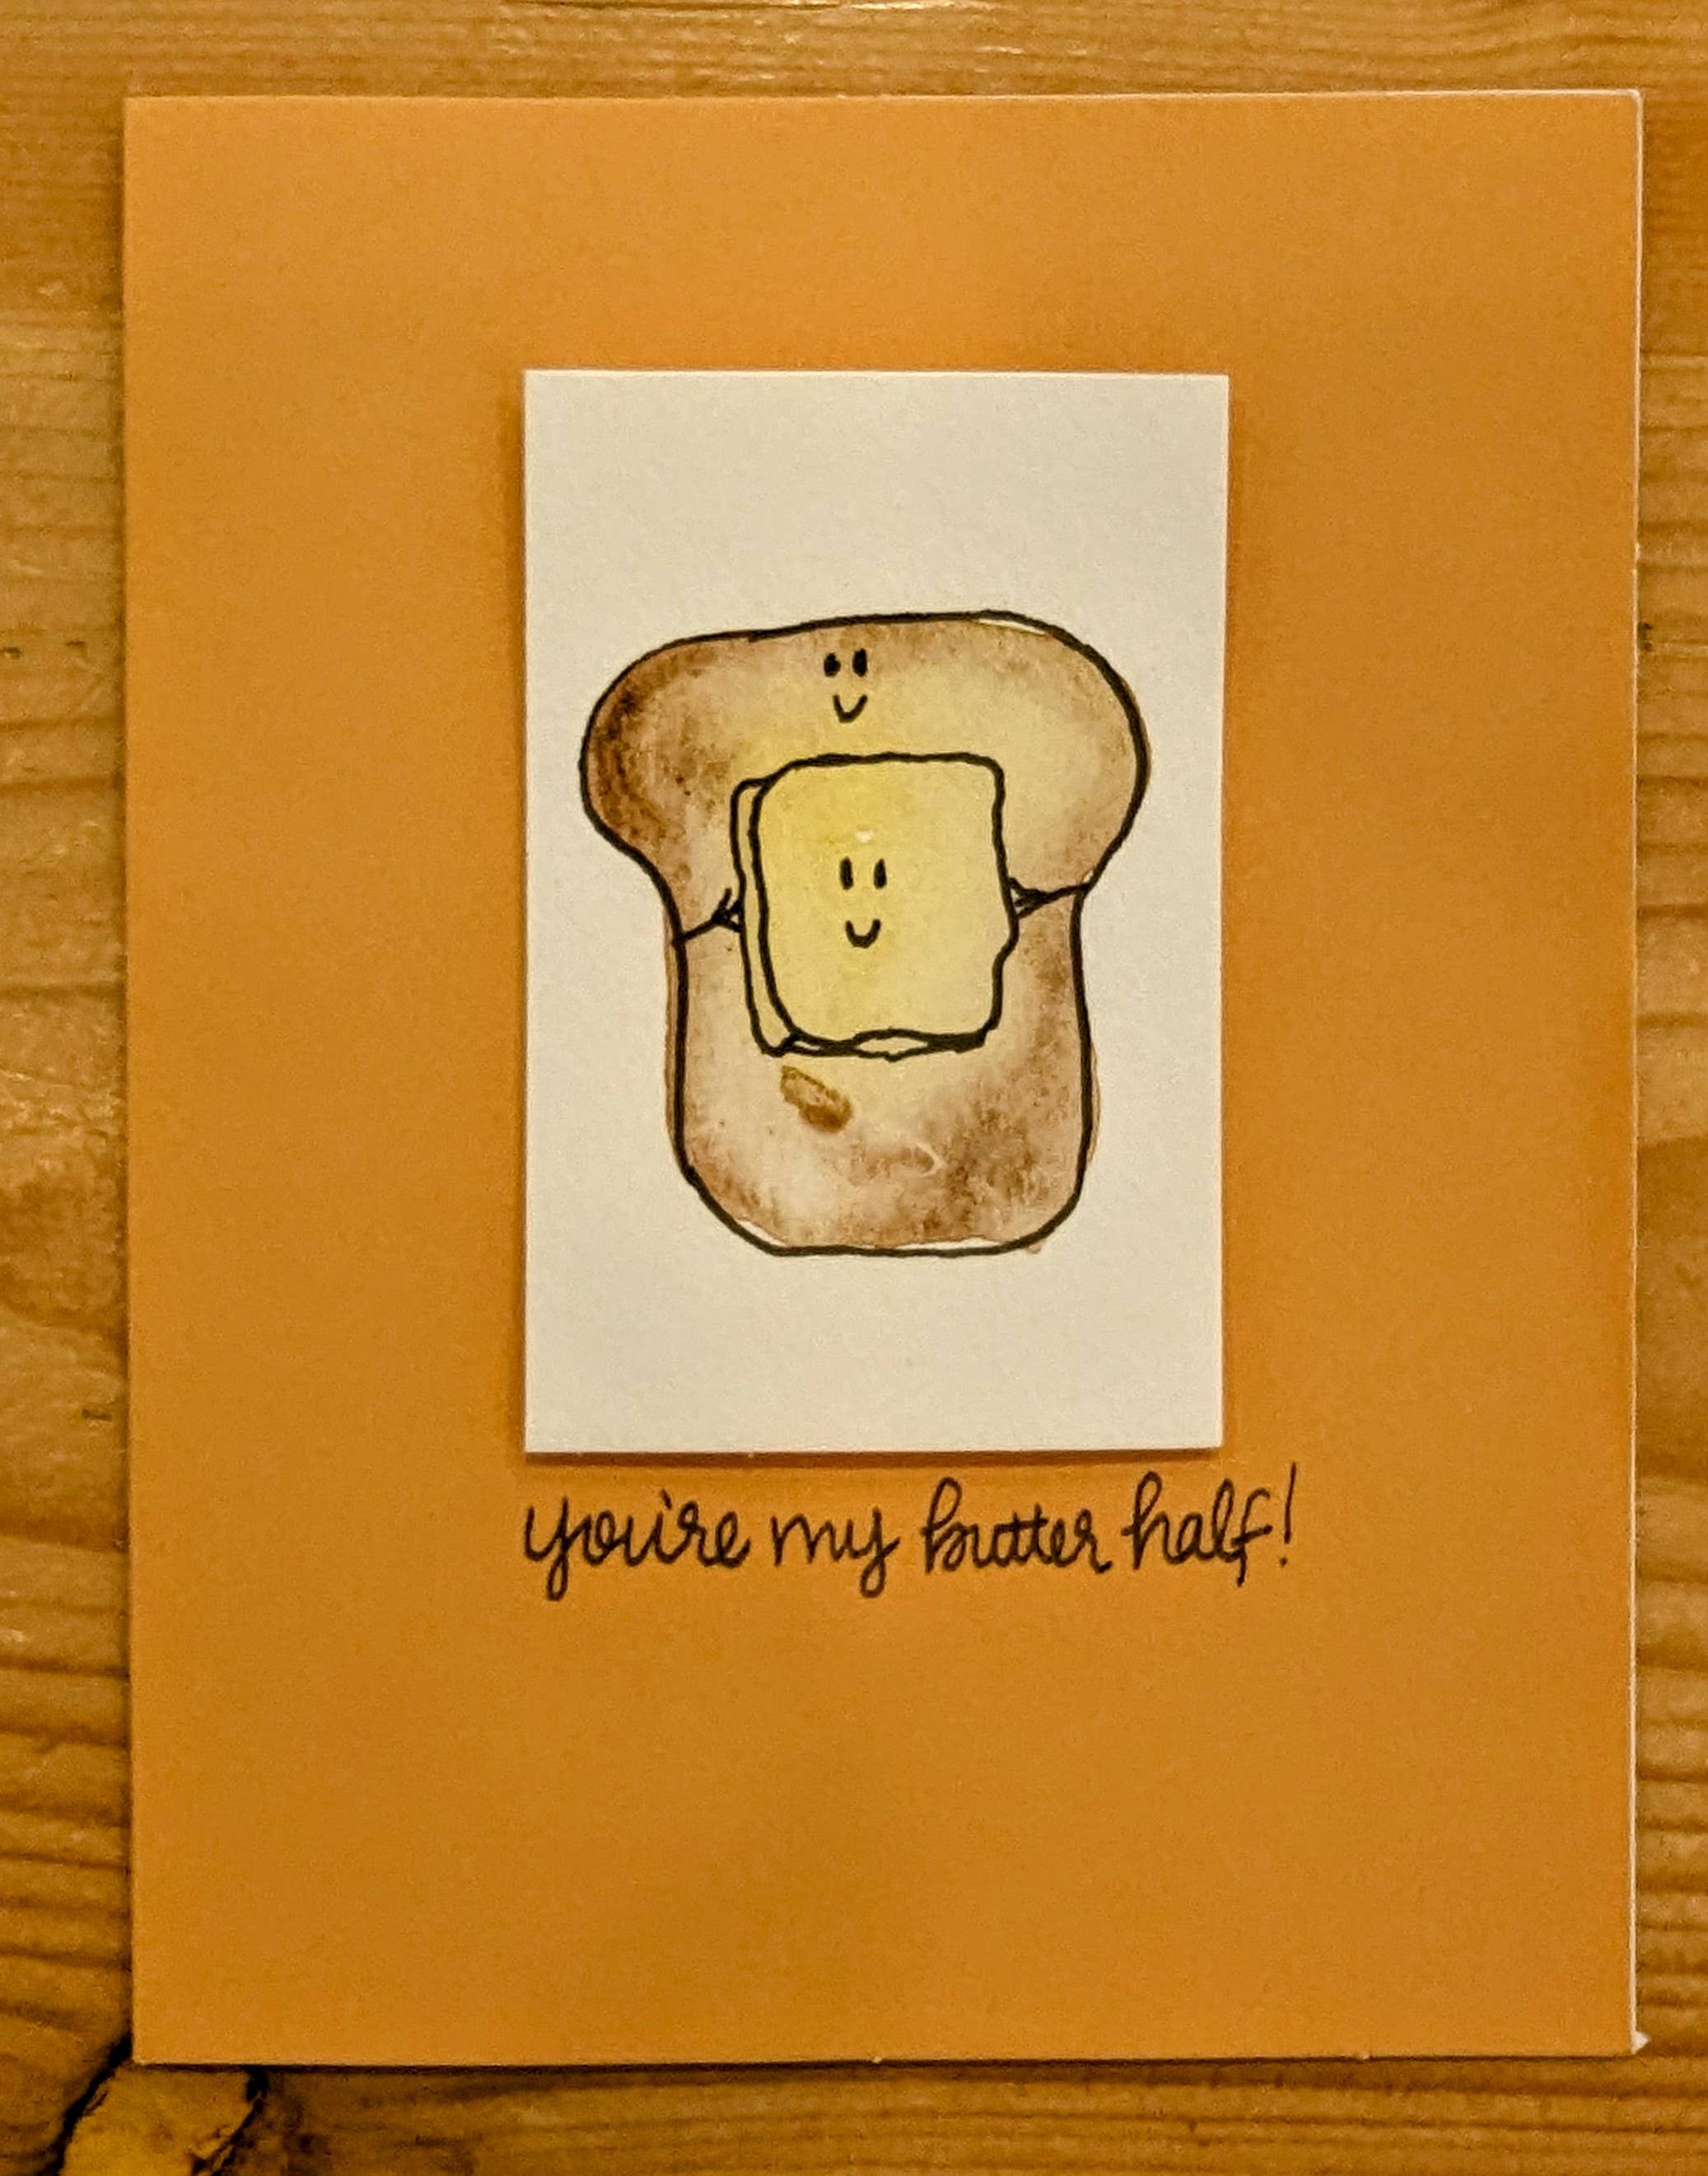 you're my butter half!